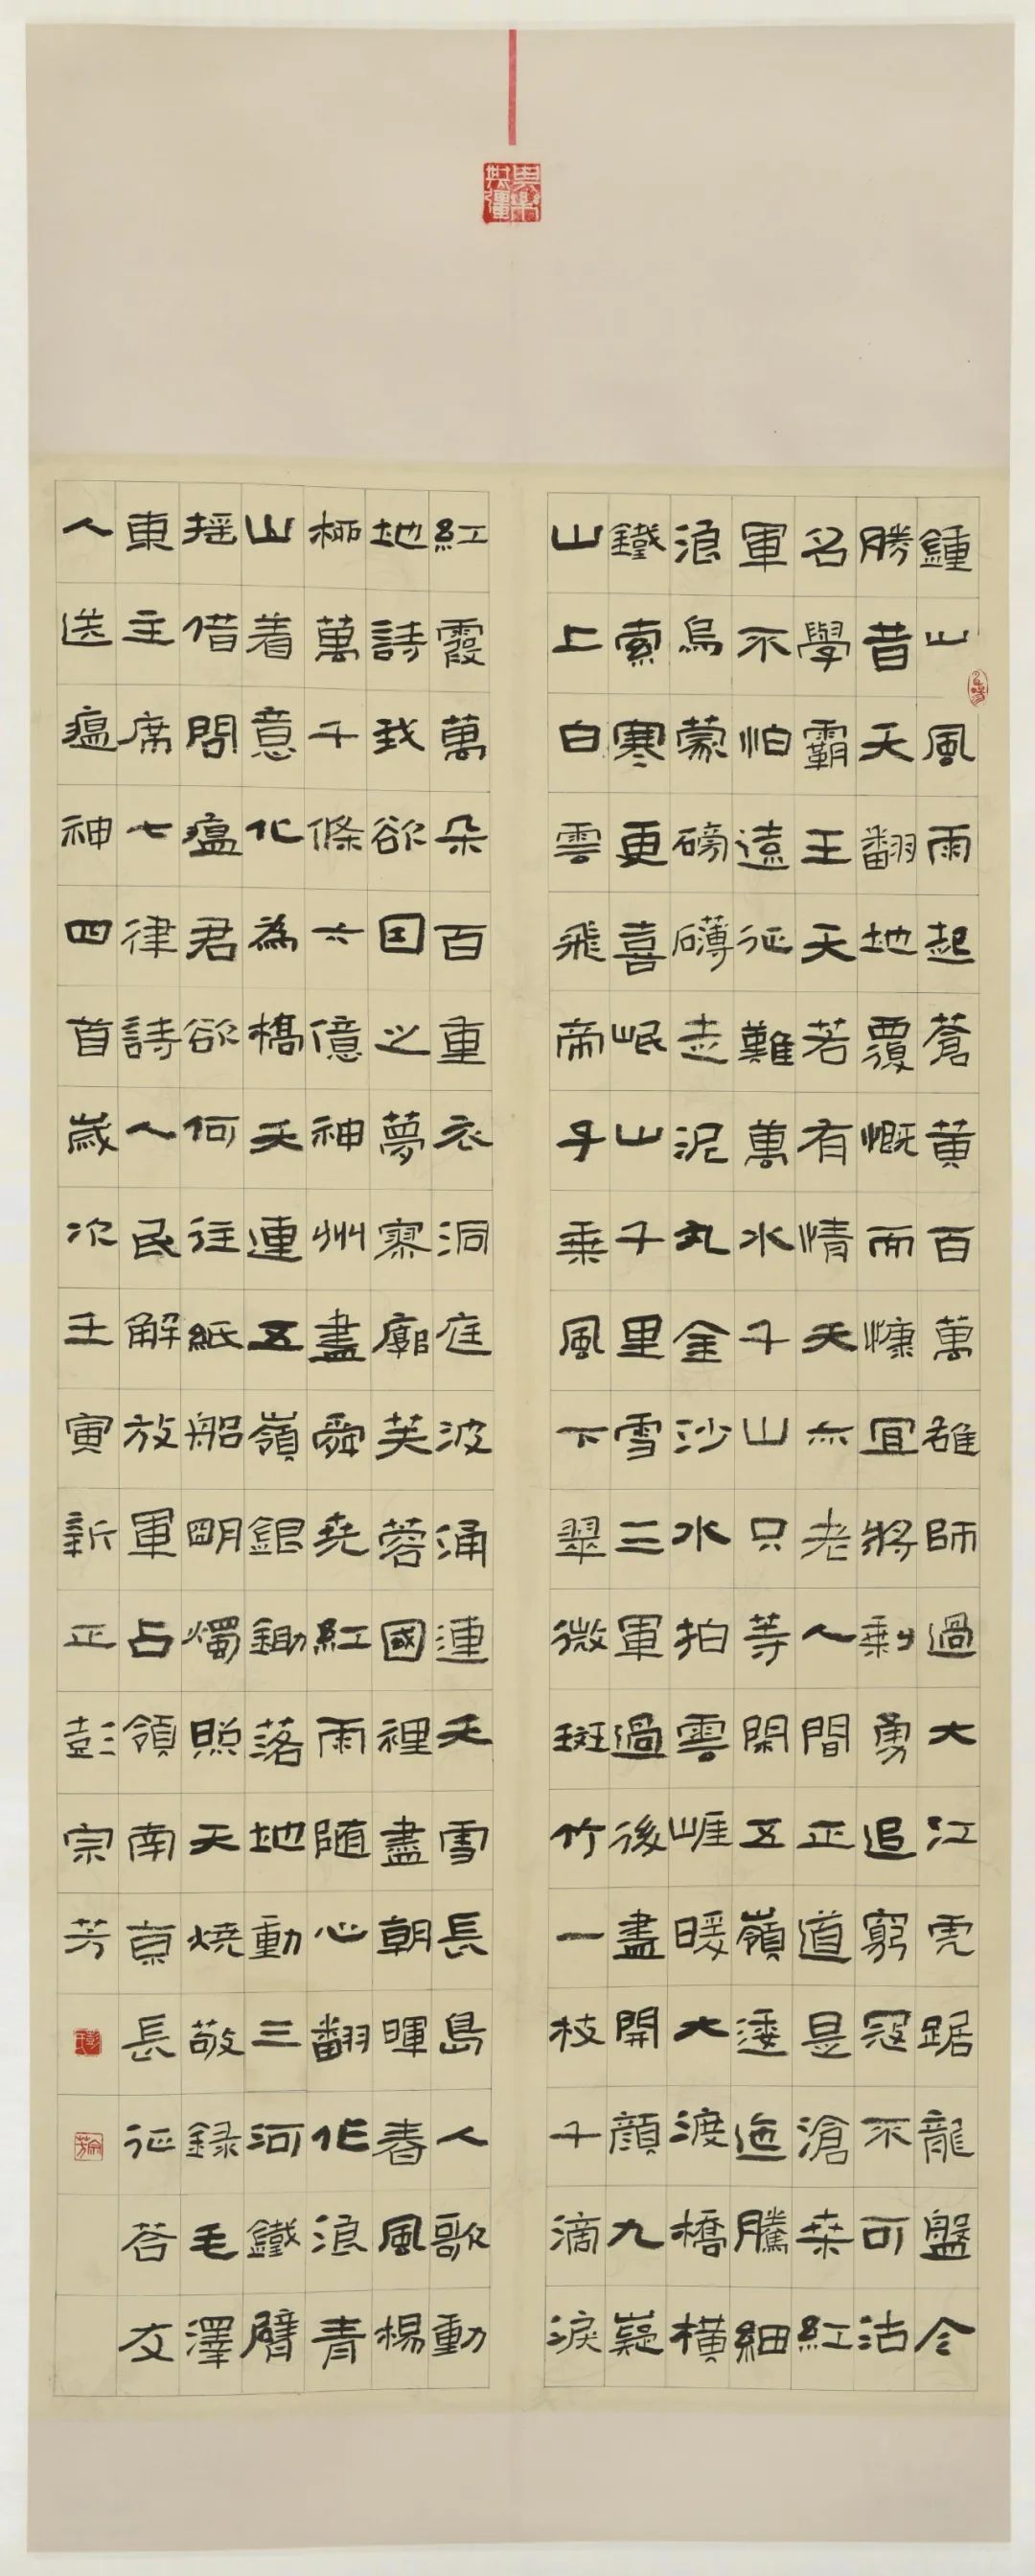 鍾山風雨起蒼黃百萬雄師過大江虎踞龍盤今
勝昔天翻地覆慨而慷宜將剩勇追窮寇不可沽
名學霸王天若有情天亦老人間正道是滄桑紅
軍不怕遠征難萬水千山只等閑五嶺逶迤騰細
浪烏蒙磅礴走泥丸金沙水拍雲崕暖大渡橋橫
鐵索寒更喜岷山千里雪三軍過後盡開顏九嶷
山上白雲飛帝子乘風下翠微斑竹一枝千滴淚
紅霞萬朵百重衣洞庭波涌連天雪長島人歌動
地詩我欲因之夢寥廓芙蓉國裡盡朝暉春風楊
柳萬千條六億神州盡舜堯紅雨隨心翻作浪青
山着意化為橋天連五嶺銀鋤落地動三河鐵臂
搖借問瘟君欲何往紙船明燭照天燒敬録毛澤
東主席七律詩人民解放軍占領南京長征答友
人送瘟神四首歲次壬寅新正彭宗芳